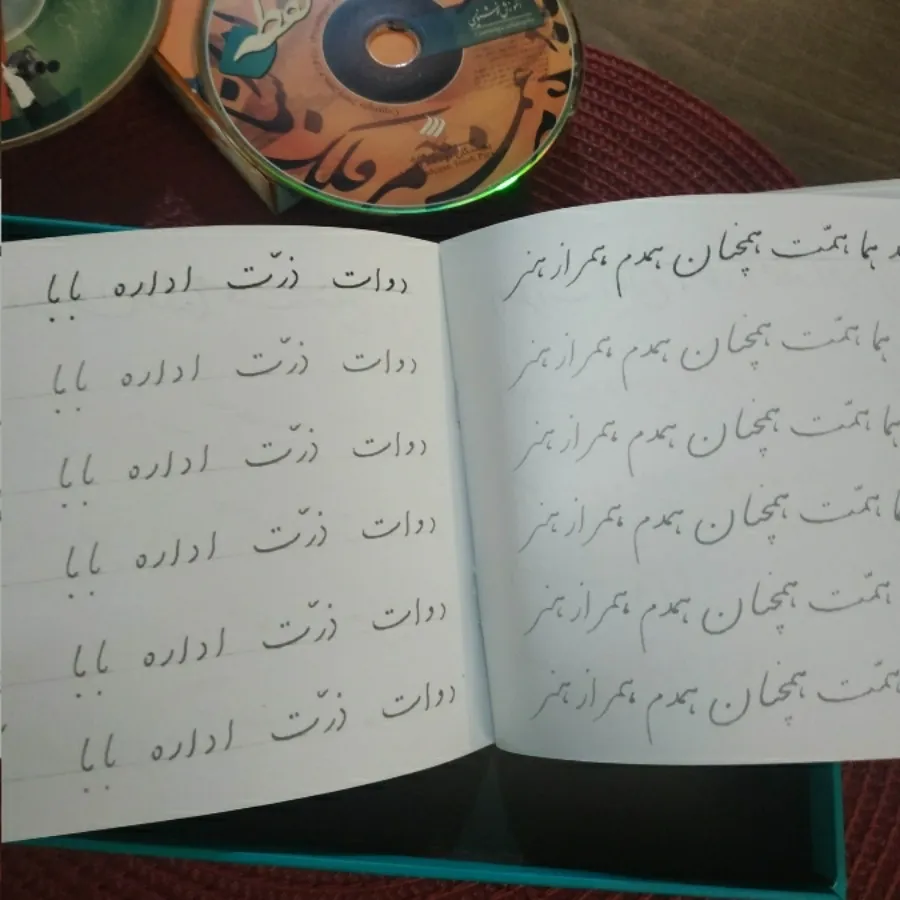 نقطه
فلک
هما همّت همچنان همدم همراز هنر
هما همّت همچنان همدم همراز هنر
هما همّت همچنان همدم همراز هنر
همّت همچنان همدم همراز هنر
همّت همچنان همدم همراز هنر
همّت همچنان همدم همراز هنر
دوات ذرّت اداره بابا
دوات ذرّت اداره بابا
دوات ذرّت اداره بابا
دوات ذرّت اداره بابا
دوات ذرّت اداره بابا
دوات ذرّت اداره بابا